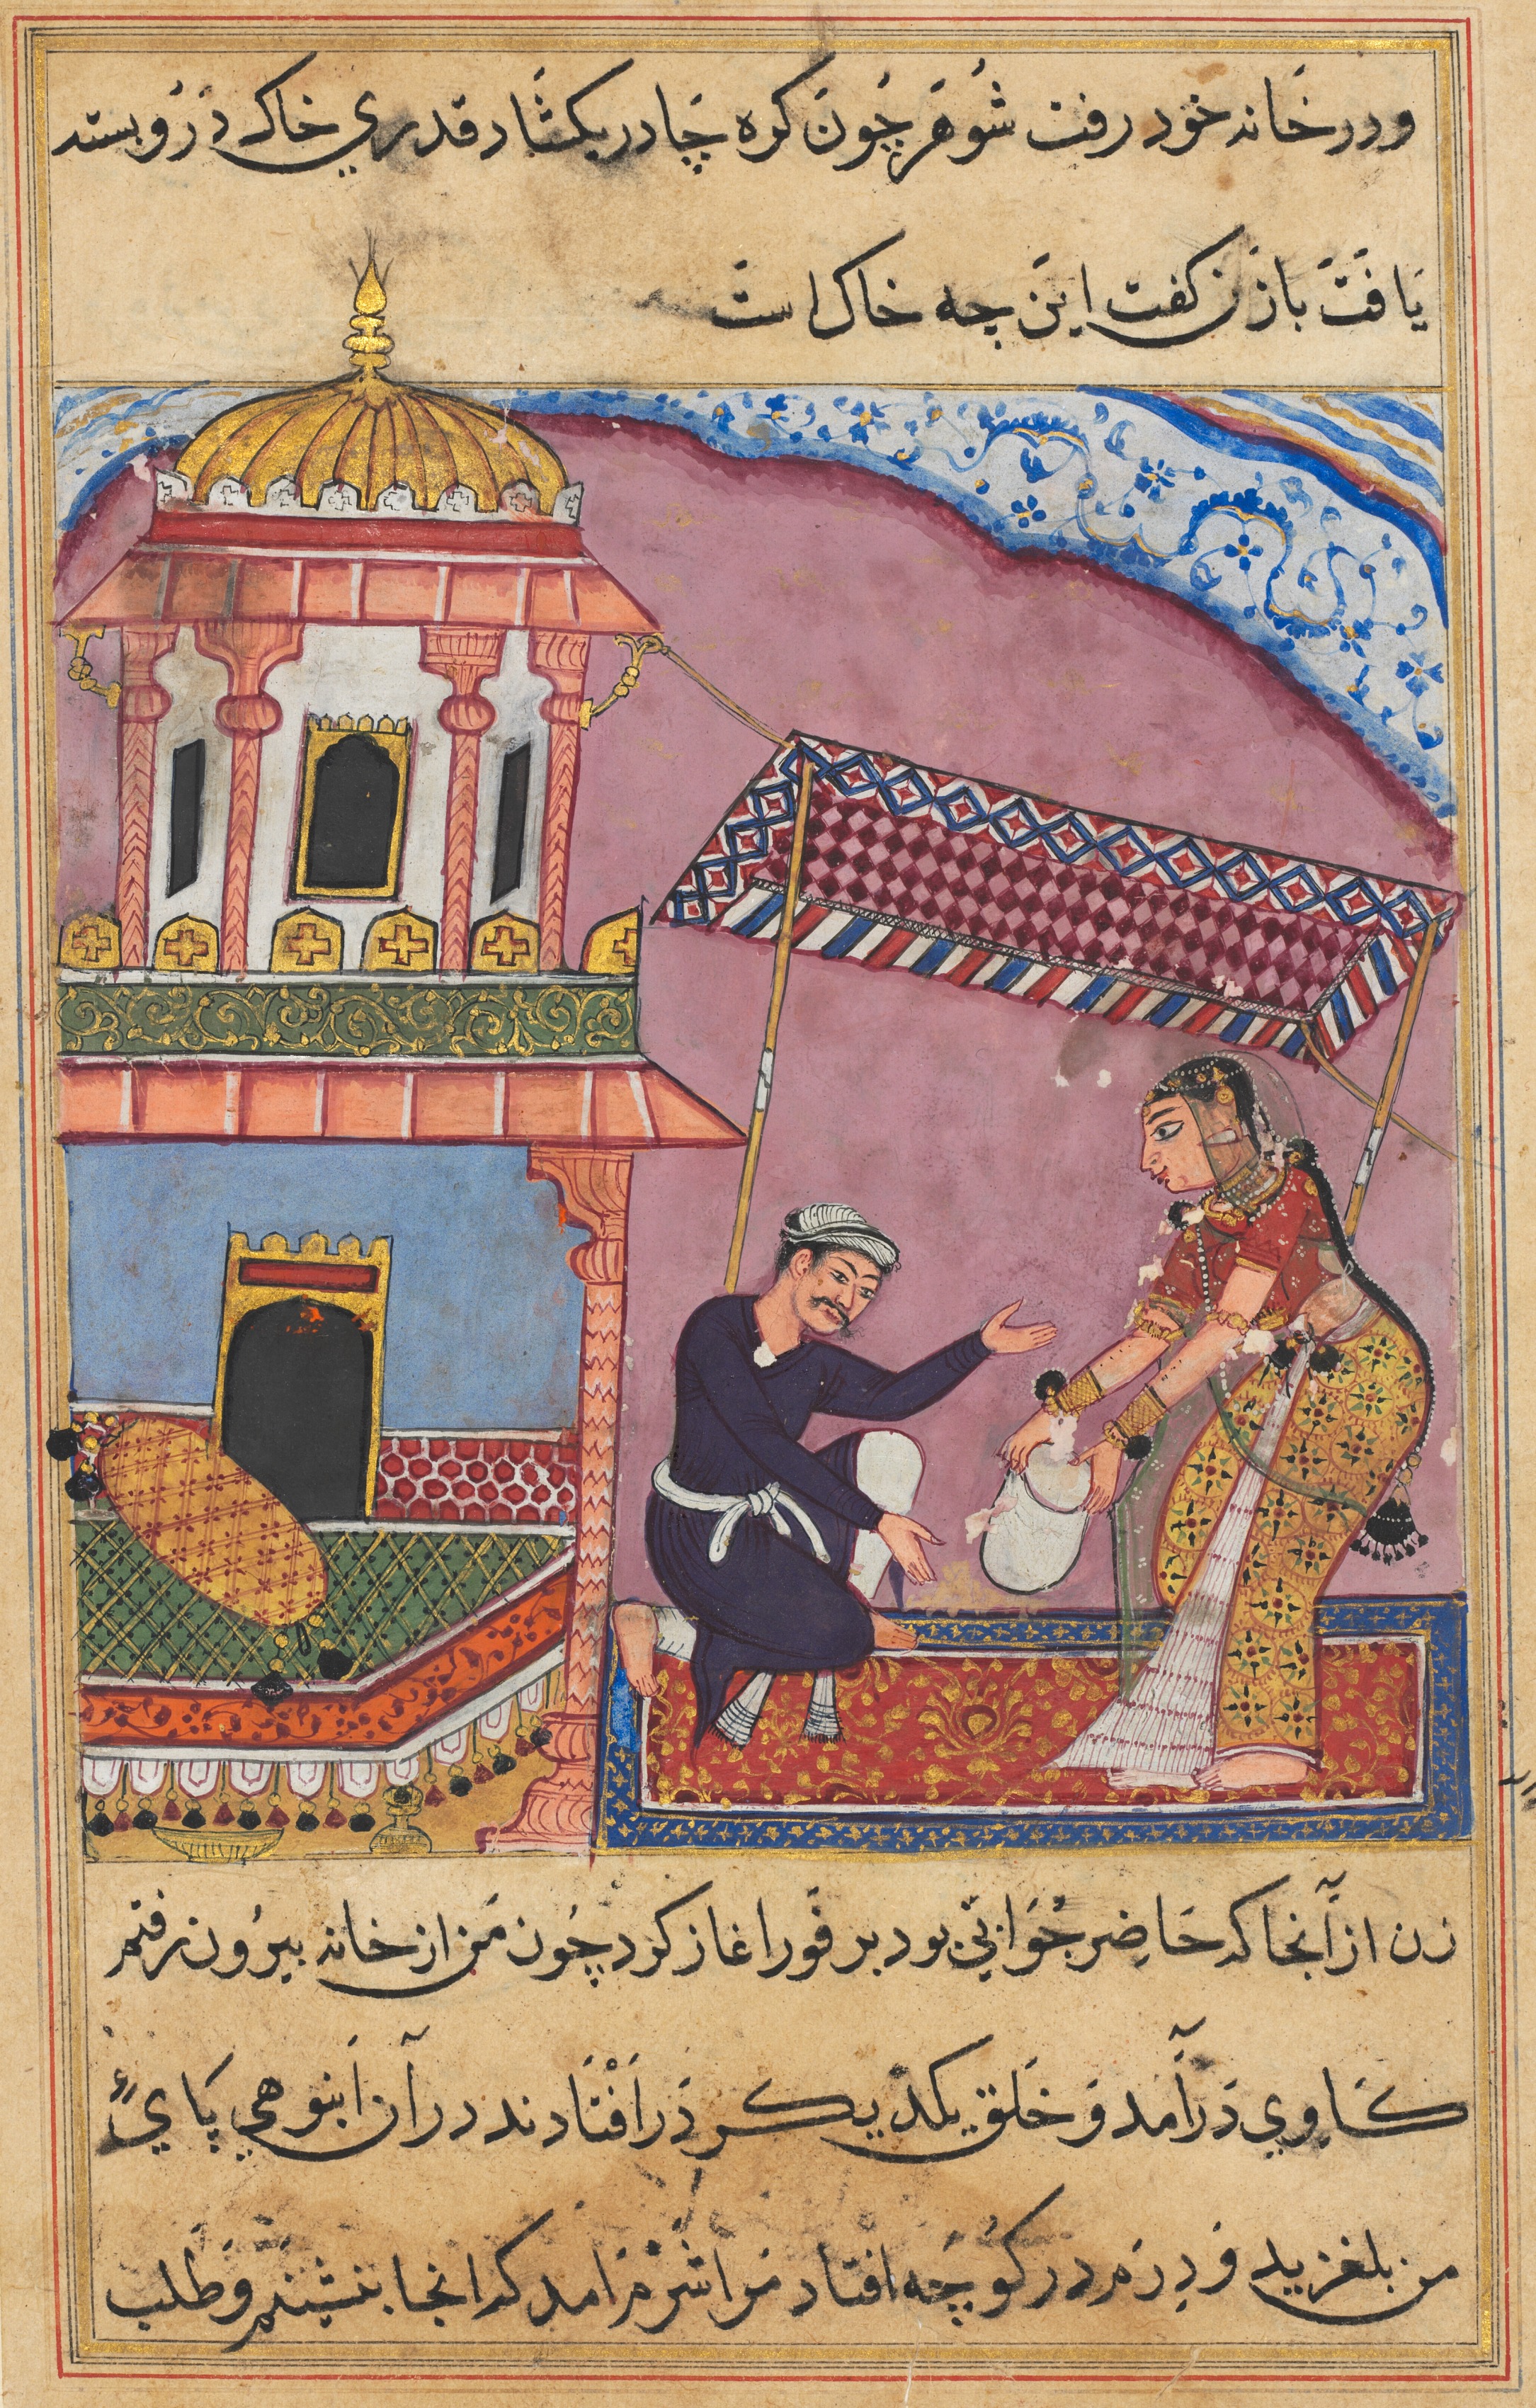 ودر خَانه خود رفت شُوهَر چُونَ كره چَادر بكشَاد قدري خاك دَرُو بسته
يَافتَ بازَن كفت اين چه خاك است
زن از آنجا كه حَاضِر جُوَابي بود بر فَور اغاز كرد چُون مَن از خانه بيرُون رفتم
كَاوِي دَرآمد وَ خَلق يكديكر دَر اَفْتَادند در آن اَنبوهي پَاي
من بلغزيد وَ دِرَم در كُوچَه افتاد مَرا شَرْم امد كه انجا بنشينم وَ طلب